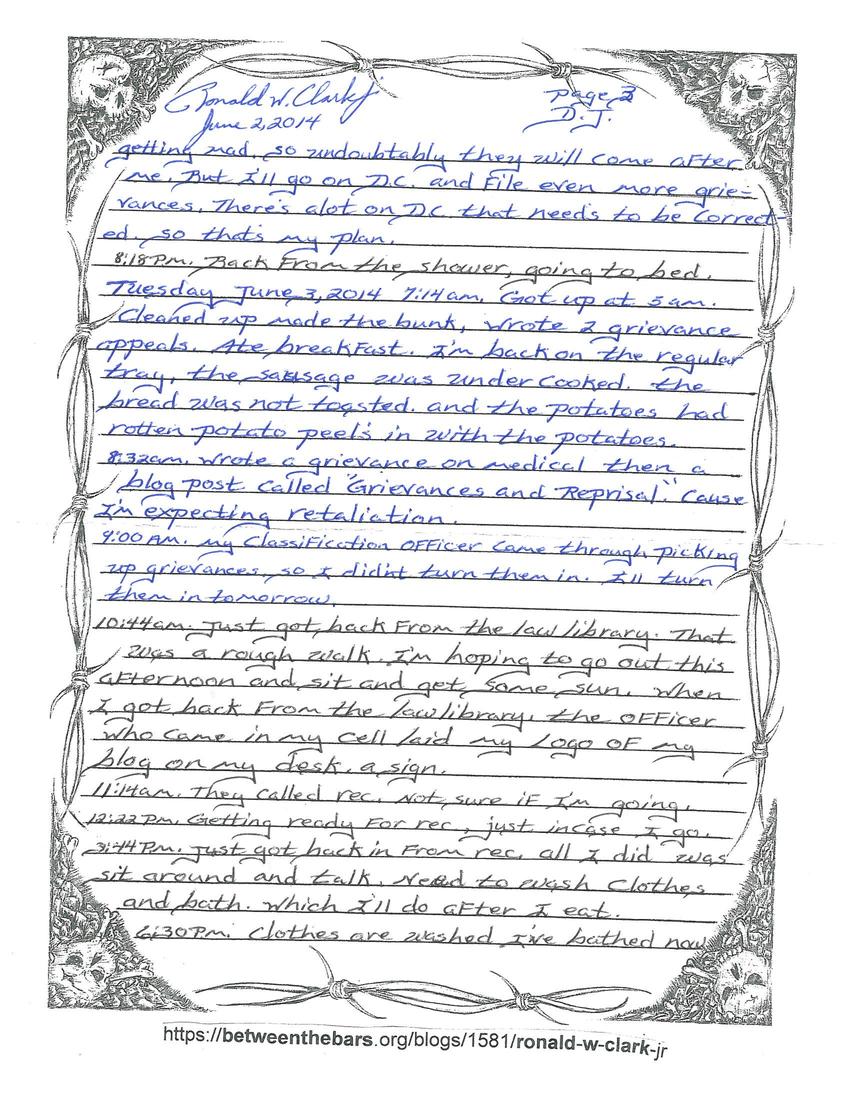 Ronald W. Clark Jr
page 2
June 2, 2014
D.J.
getting mad, so undoubtably they will come after
me. But I'll go on D.C. and File even more grie-
vances. There's alot on D.C. that needs to be Correct-
ed. so that's my plan.
8:18 Pm. Back From the shower, going to bed.
Tuesday June 3, 2014 7:14am. Got up at 5am.
Cleaned up made the bunk, wrote 2 grievance
appeals. Ate breakFast. I'm back on the regular
tray, the sausage was under cooked. the
bread was not toasted. and the potatoes had
rotten potato peel's in with the potatoes.
8:32am. Wrote a grievance on medical then a
blog post called "Grievances and Reprisal." Cause
I'm expecting retaliation.
9:00 AM. my ClassiFication OFFicer came through picking
up grievances, so I did'nt turn them in. I'll turn
them in tomorrow.
10:44am. Just got back From the law library. That
was a rough walk. I'm hoping to go out this
aFternoon and sit and get some sun. When
I got back From the law library, the OFFicer
who came in my cell laid my Logo OF my
blog on my desk. a sign.
11:14am. They called rec. Not sure iF I'm going.
12:22 Pm. Getting ready For rec, just incase I go.
3:44 Pm. Just got back in From rec, all I did was
sit around and talk. Need to wash Clothes
and bath. Which I'll do aFter I eat.
6:30 Pm. Clothes are washed I've bathed now
https://betweenthebars.org/blogs/1581/ronald-w-clark-jr